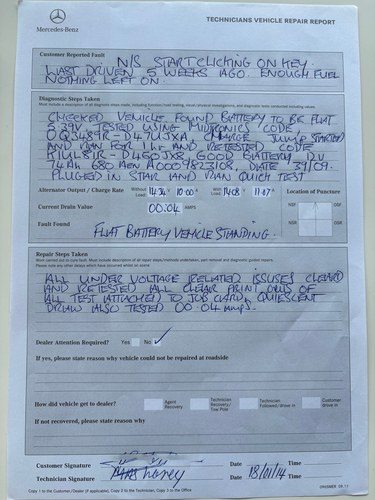 TECHNICIANS VEHICLE REPAIR REPORT
Mercedes-Benz
Customer Reported Fault
N/S START CLICKING ON KEY.
LAST DRIVEN 5 WEEKS AGO. ENOUGH FUEL
NOTHING LEFT ON.
Diagnostic Steps Taken
CHECKED VEHICLE FOUND BATTERY TO BE FLAT
TESTED USING MIDTRONICS CODE
CHARGE JUMP STARTED
AND RAN FOR 1 hr AND RETESTED CODE
GOOD BATTERY 12V
74Ah 680 Aen A0009823108, DATE 31/09.
PLUGED IN STAR AND RAN QUICK TEST
Alternator Output / Charge Rate Without Load 10.00 With Load Location of Puncture
Current Drain Value 00.04 AMPS
NSF OSF
NSR OSR
Fault Found FLAT BATTERY VEHICLE STANDING.
Repair Steps Taken
ALL UNDER VOLTAGE RELATED ISSUSES CLEARD
AND RETESTED ALL CLEAR PRINT OUTS OF
ALL TEST ATTACHED TO JOB CARD, QUIESCENT
DRAW ALSO TESTED 00.04 Amps.
Dealer Attention Required? Yes No ✓
If yes, please state reason why vehicle could not be repaired at roadside
How did vehicle get to dealer? Agent Recovery Technician Recovery/ Tow Pole Technician Followed/drove in Customer drove in
If not recovered, please state reason why
Customer Signature Date Time
Technician Signature Date 18/01/14 Time
Copy 1 to the Customer/Dealer (if applicable), Copy 2 to the Technician, Copy 3 to the Office.